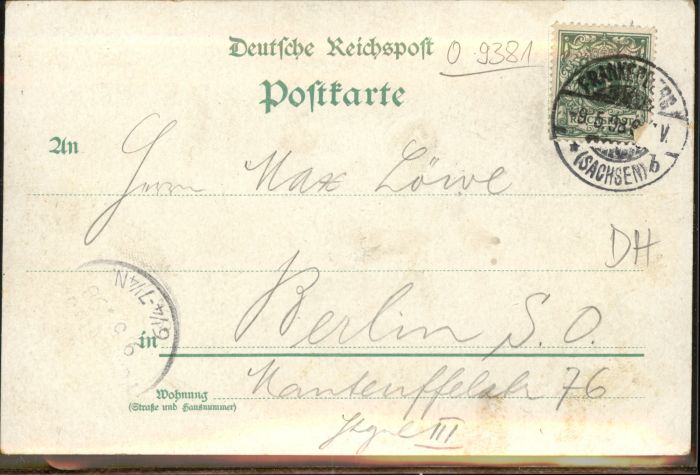 Deutsche Reichspost
O 9381
Postkarte
FRANKENBERG
9.5.98. V.
*(SACHSEN) b
An
Herrn Max Löwe
DH
6¼-7¼N
in Berlin S.O.
Wohnung
(Straße und Hausnummer)
Manteuffelstr 76
III